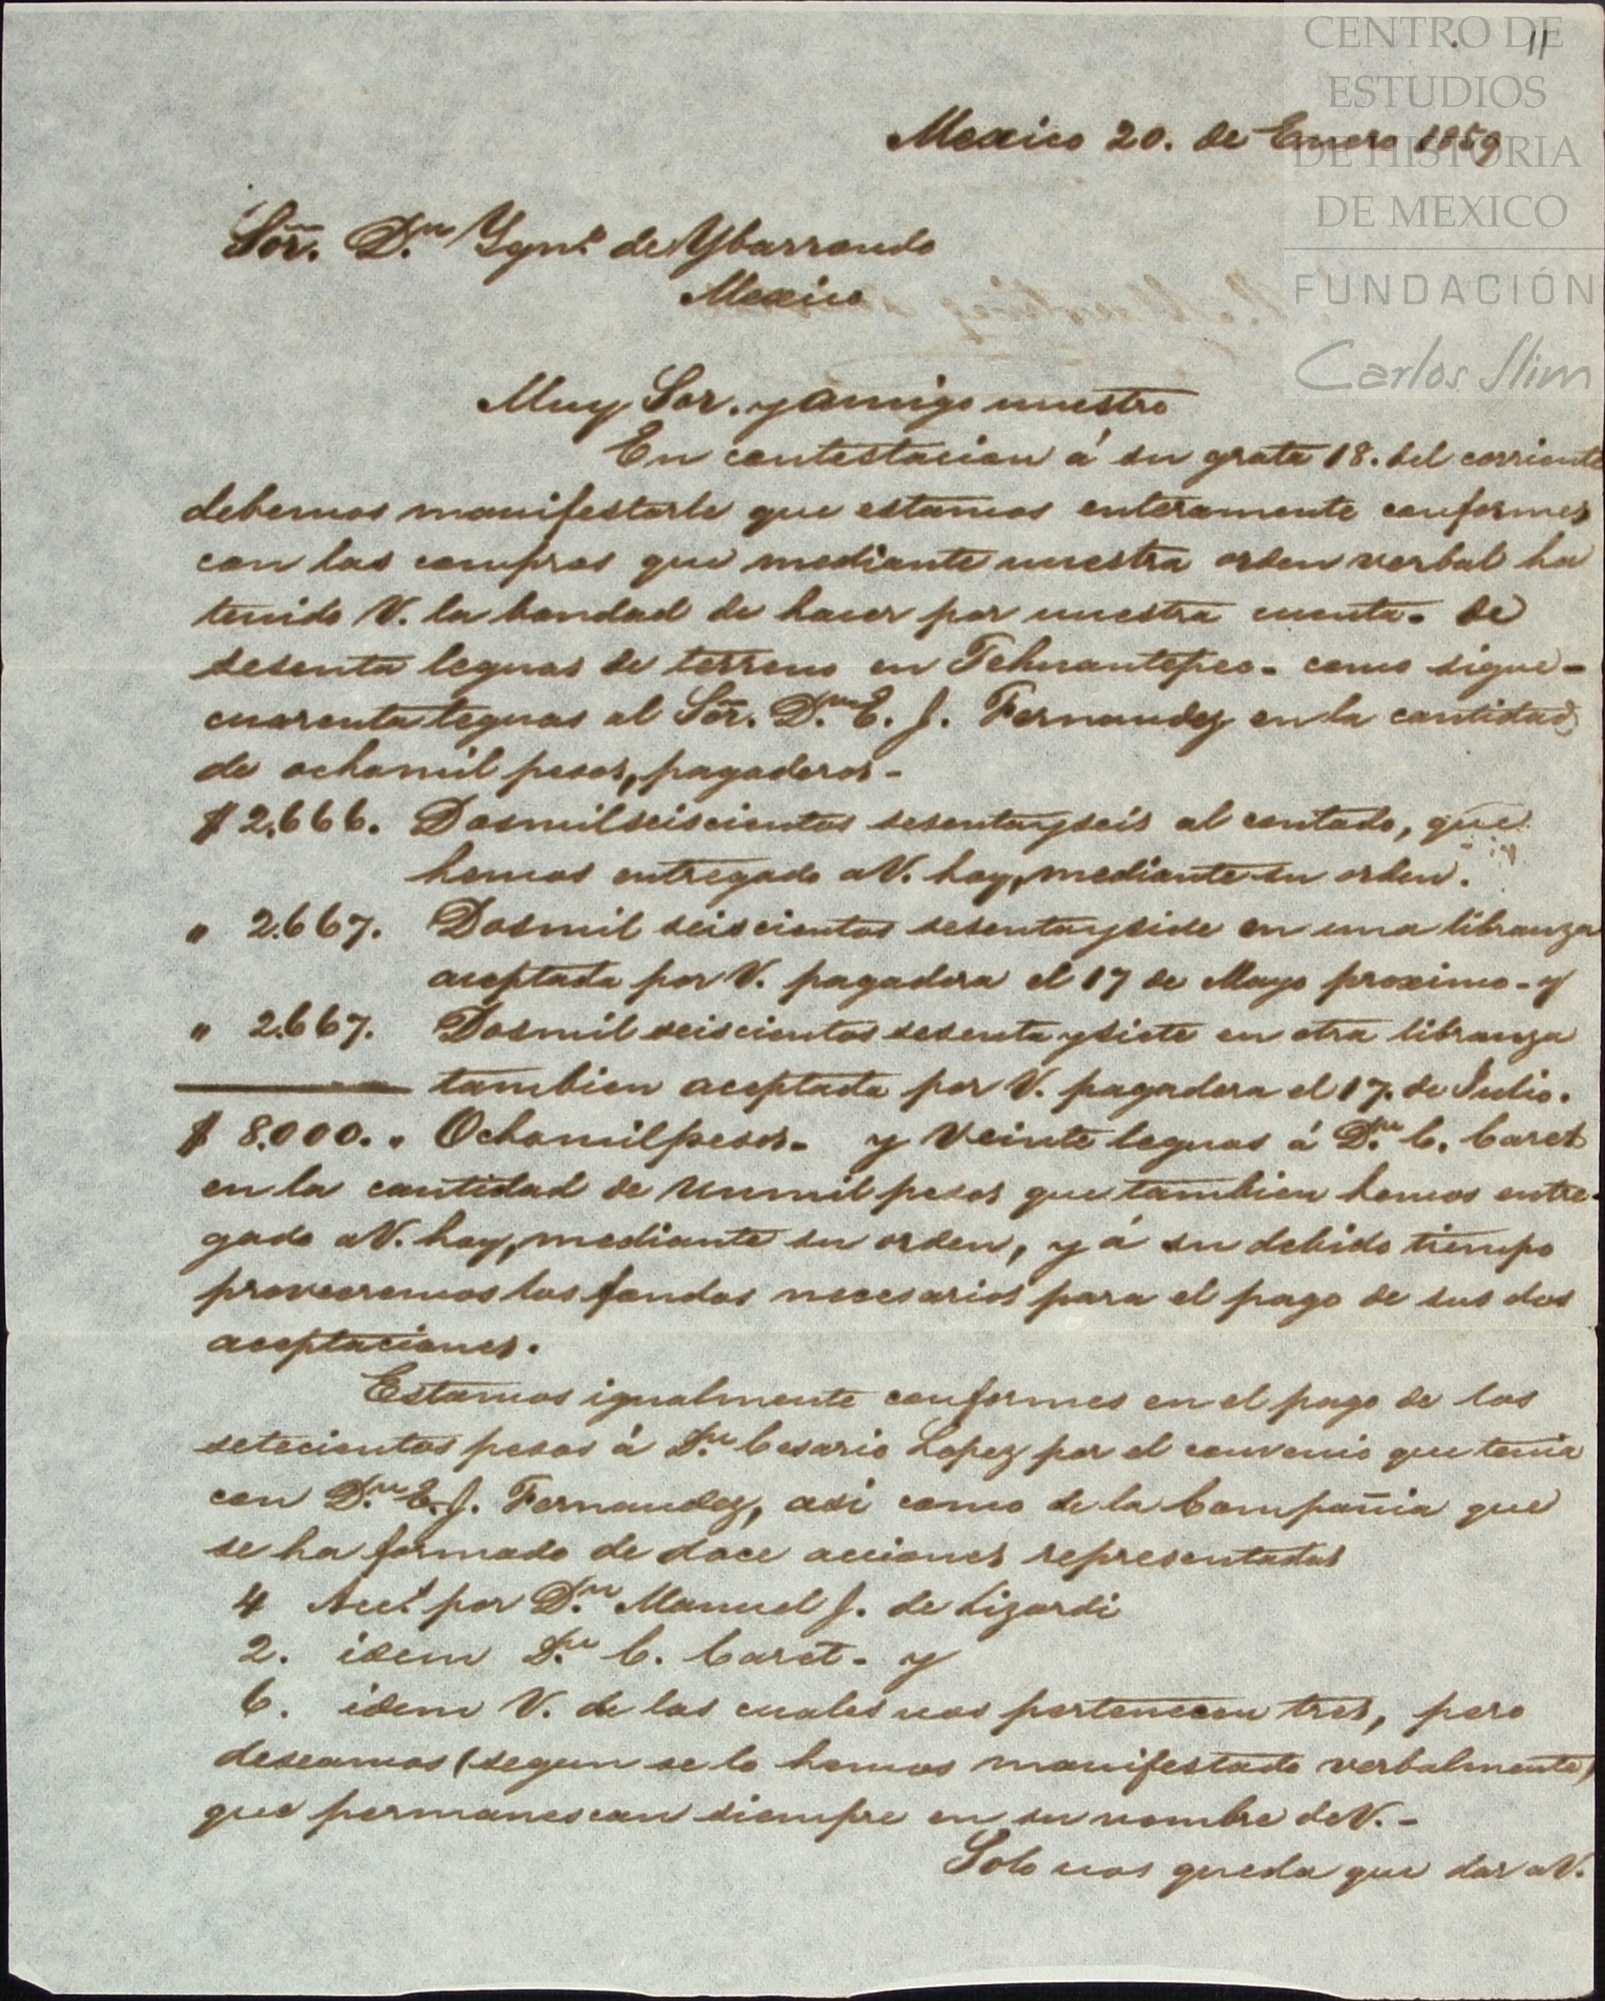 CENTRO DE
ESTUDIOS
DE HISTORIA
DE MEXICO
FUNDACIÓN
Carlos Slim
11
Mexico 20. de Enero 1859
Sor. Dn. Ygno. de Ybarrondo
Mexico
Muy Sor. y amigo nuestro
En contestacion á su grata 18. del corriente
debemos manifestarle que estamos enteramente conformes
con las compras que mediante nuestra orden verbal ha
tenido V. la bondad de hacer por nuestra cuenta. de
sesenta leguas de terreno en Tehuantepec- como sigue-
cuarenta leguas al Sor. Dn. E. J. Fernandez en la cantidad
de ochomil pesos, pagaderos-
$ 2.666. Dosmil seiscientos sesentayseis al contado, que
hemos entregado aV. hoy, mediante su orden.
" 2.667. Dosmil seiscientos sesentaysiete en una libranza
aceptada por V. pagadera el 17 de Mayo proximo- y
" 2.667. Dosmil seiscientos sesenta ysiete en otra libranza
tambien aceptada por V. pagadera el 17. de Julio.
$ 8.000. " Ochomil pesos- y veinte leguas á Dn. C. Caret
en la cantidad de unmil pesos que tambien hemos entre-
gado aV. hoy, mediante su orden, y á su debido tiempo
proveeremos los fondos necesarios para el pago de sus dos
aceptaciones.
Estamos igualmente conformes en el pago de los
setecientos pesos á Dn. Cesario Lopez por el convenio que tenia
con Dn. E. J. Fernandez, asi como de la Compañia que
se ha formado de doce acciones representadas
4 Accs. por Dn. Manuel J. de Lizardi
2. idem Dn. C. Caret- y
6. idem V. de las cuales nos pertenecen tres, pero
deseamos (segun se lo hemos manifestado verbalmente)
que permanescan siempre en su nombre deV.-
Solo nos queda que dar aV.